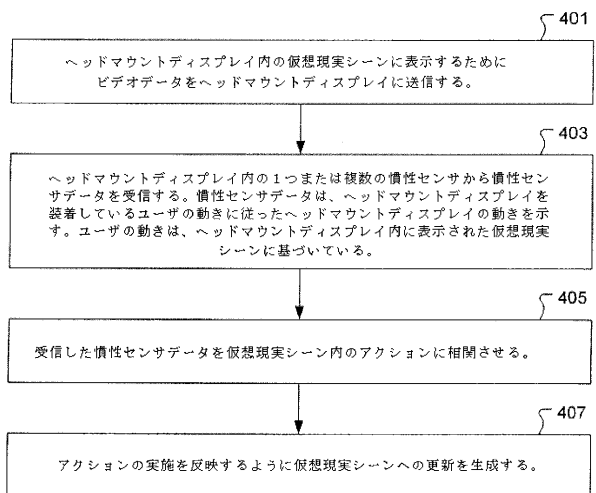 401
ヘッドマウントディスプレイ内の仮想現実シーンに表示するために
ビデオデータをヘッドマウントディスプレイに送信する。
403
ヘッドマウントディスプレイ内の1つまたは複数の慣性センサから慣性セン
サデータを受信する。慣性センサデータは、ヘッドマウントディスプレイを
装着しているユーザの動きに従ったヘッドマウントディスプレイの動きを示
す。ユーザの動きは、ヘッドマウントディスプレイ内に表示された仮想現実
シーンに基づいている。
405
受信した慣性センサデータを仮想現実シーン内のアクションに相関させる。
407
アクションの実施を反映するように仮想現実シーンへの更新を生成する。